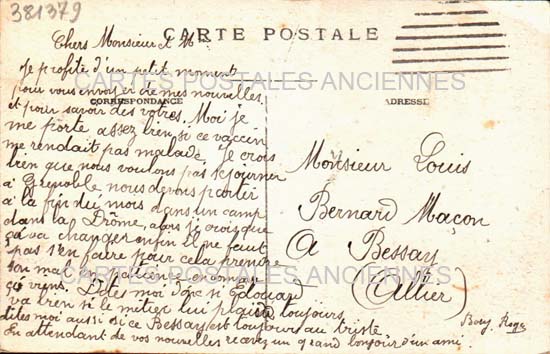 381379
CARTE POSTALE
CARTES POSTALES ANCIENNES
CORRESPONDANCE
ADRESSE
Chers Monsieur et M
Je profite d'un petit moment
pour vous envoyer de mes nouvelles
et pour savoir des votres. Moi je
me porte assez bien si ce vaccin
me rendait pas malade. Je crois
bien que nous voulons pas séjourner
a Grenoble nous devons partir
a la fin du mois dans un camp
dans la Drôme, alors je crois que
ça va changer enfin il ne faut
pas s'en faire pour cela prendre
son mal en patience et comme
ça viens. Dites moi donc si Edouard
va bien si le métier lui plait toujours
dites moi aussi si ce Bessay est toujours au triste
En attendant de vos nouvelles recevez un grand bonjour d'un ami.
Monsieur Louis
Bernard Maçon
A Bessay
(Allier)
CARTES POSTALES ANCIENNES